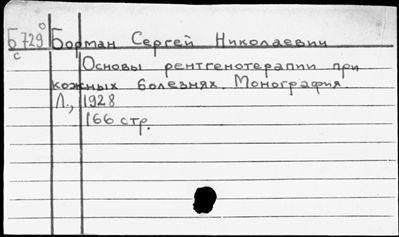 Б 729 о Борман Сергей Николаевич
с
Основы рентгенотерапии при
кожных болезнях. Монография.
Л., 1928
166 стр.